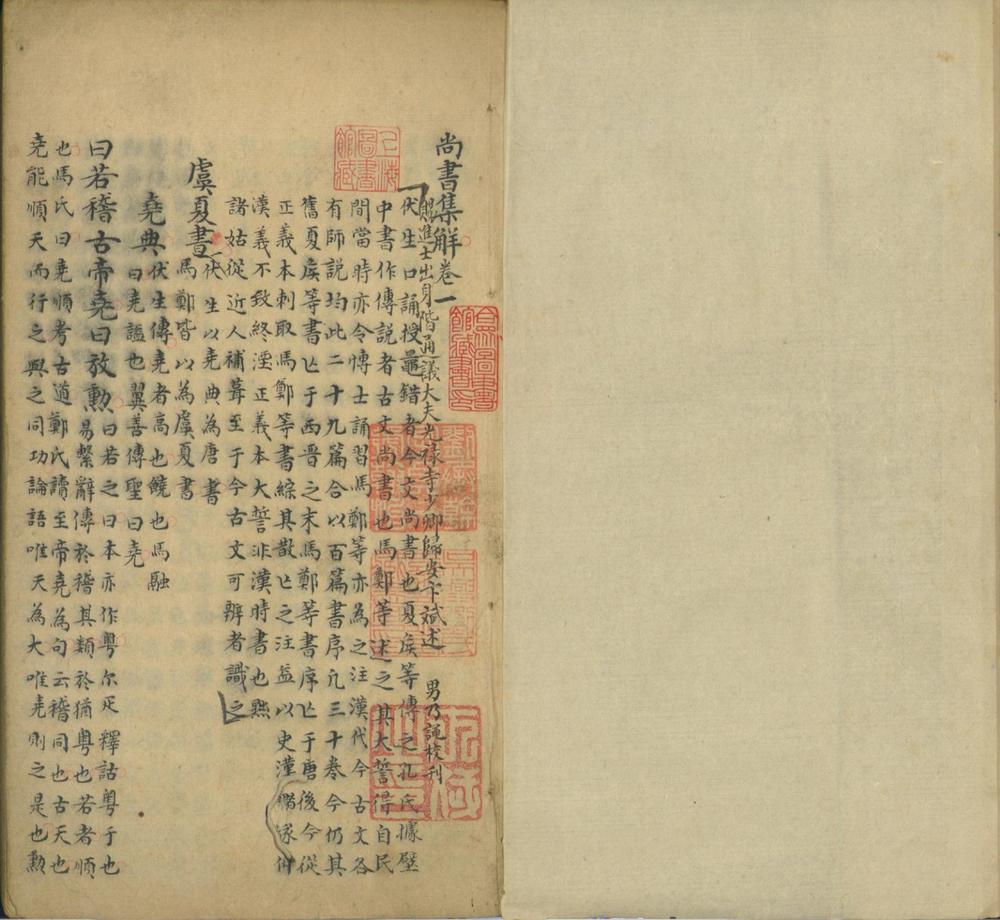 尚書集解卷一
賜進士出身階通議大夫光祿寺少卿歸安卞斌述 男乃詵校刊
伏生口誦授鼂錯者今文尚書也夏矦等傳之孔氏據壁
中書作傳說者古文尚書也馬鄭等述之其大誓得自民
間當時亦令愽士誦習馬鄭等亦為之注漢代今古文各
有師說均此二十九篇合以百篇書序凢三十卷今仍其
舊夏矦等書亾于西晋之末馬鄭等書序亾于唐後今從
正義本刺取馬鄭等書綜其散亾之注益以史
漢義不致終湮正義本大誓非漢時書也㸃
諸姑從近人補葺至于今古文可辨者識之
虞夏書 伏生以堯典為唐書
馬鄭皆以為虞夏書
堯典 伏生傳堯者高也饒也馬融
曰堯謚也翼善傳聖曰堯
曰若稽古帝堯曰放勲 曰若之曰本亦作粤尔疋釋詁粤于也
易繫辭傳於稽其類於猶粤也若者順
也馬氏曰堯順考古道鄭氏讀至帝堯為句云稽同也古天也
堯能順天而行之與之同功論語唯天為大唯堯則之是也勲
上海圖書館藏